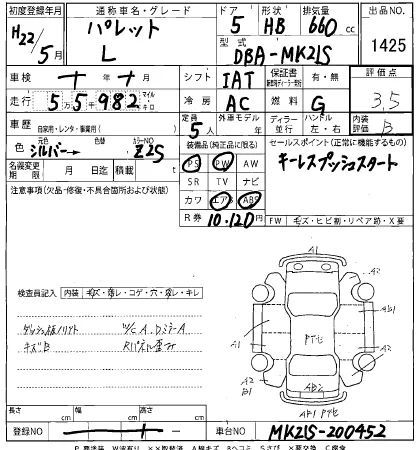 初度登録年月 通称車名・グレード ドア 形状 排気量 出品NO.
H22/5月 パレット L 5 HB 660cc 1425
型式 DBA-MK21S
車検 年 月 シフト IAT 保証書 有・無 評価点
走行 55千982 マイル キロ 冷房 AC 燃料 G 3.5
車歴 自家用・レンタ・事業用( ) 定員 5人 外車モデル 年 ディーラー 並行 ハンドル 左・右 内装評価 B
色 元色 シルバー→ 色替 カラーNO Z2S 装備品(純正品に限る) セールスポイント(正常に機能するもの)
名義変更期限 月 日迄 積載 t PS PW AW キーレスプッシュスタート
注意事項(欠品・修復・不具合箇所および状態) SR TV ナビ
カワ エアB ABS
R券 10.120円 FW 毛ズ・ヒビ割・リペア跡・X要
A1
A2
検査員記入 内装 毛ズ・汚レ・コゲ・穴・破レ・キレ AB1
キズB Rパネル歪み PTセ
A1 A1
A2 B1 A2
AB2
AB1 PTセ
長さ cm 幅 cm 高さ cm
登録NO 車台NO MK21S-200452